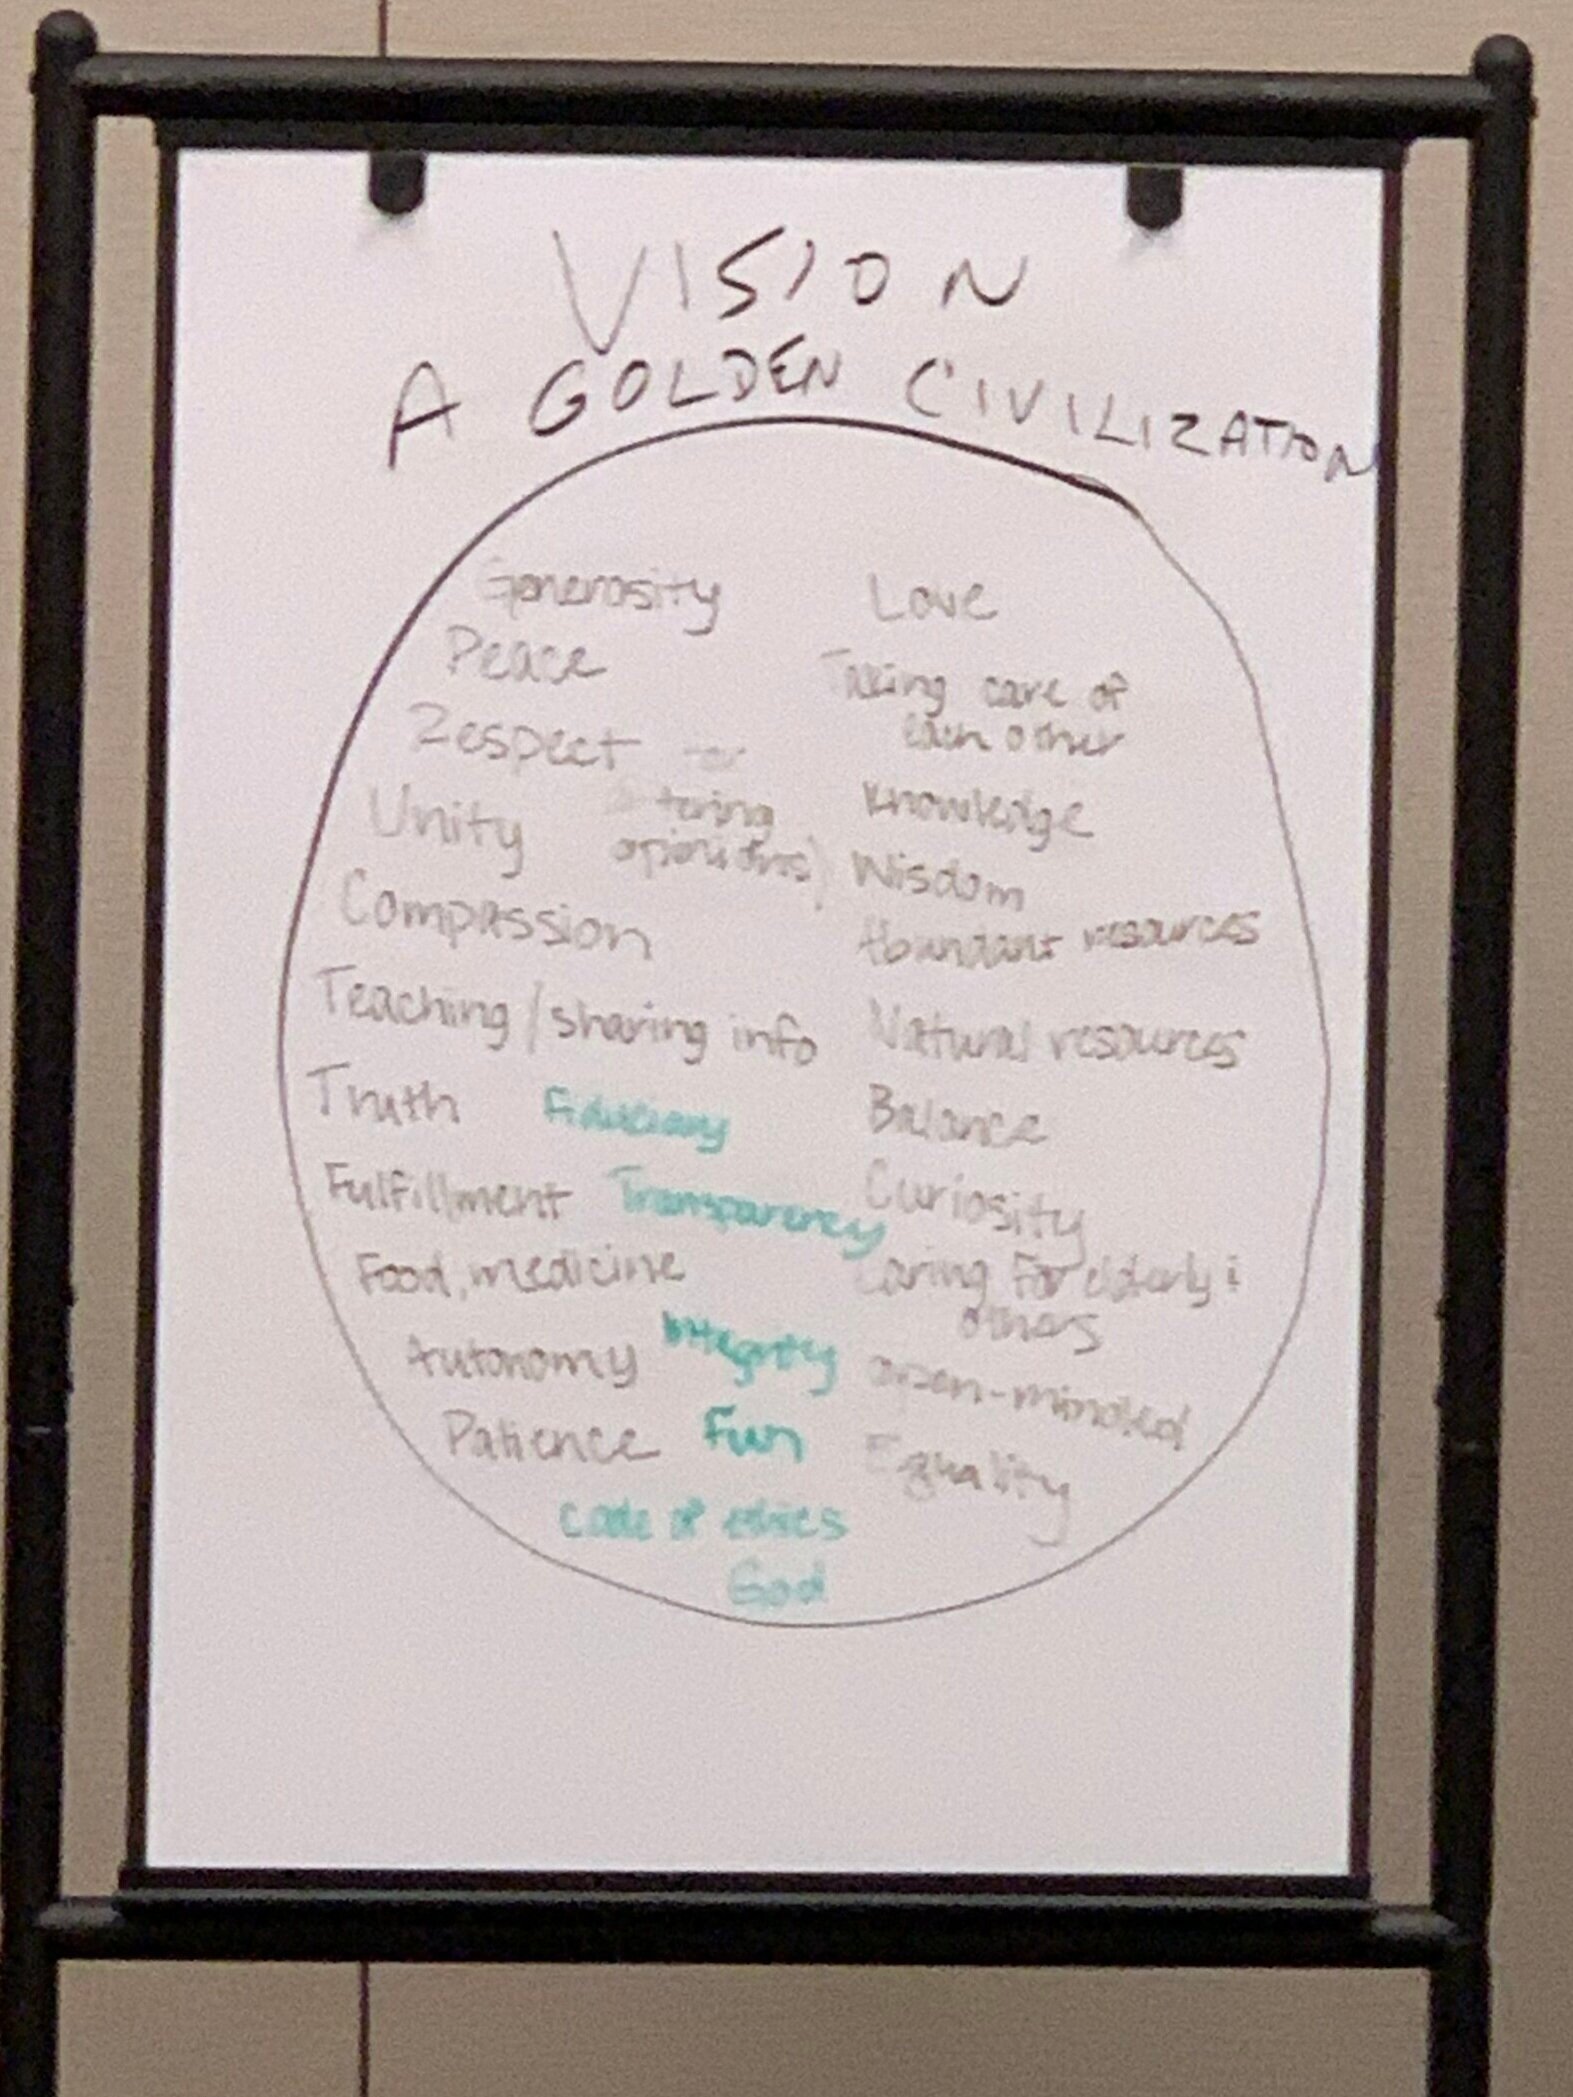 VISION
A GOLDEN CIVILIZATION
Generosity
Peace
Respect for
differing
opinions)
Unity
Compassion
Teaching/sharing info
Truth
Fulfillment
Food, medicine
Autonomy
Patience
Fiduciary
Transparency
Integrity
Fun
Code of ethics
God
Love
Taking care of
each other
Knowledge
Wisdom
Abundant resources
Natural resources
Balance
Curiosity
Caring for elderly &
others
open-minded
Equality